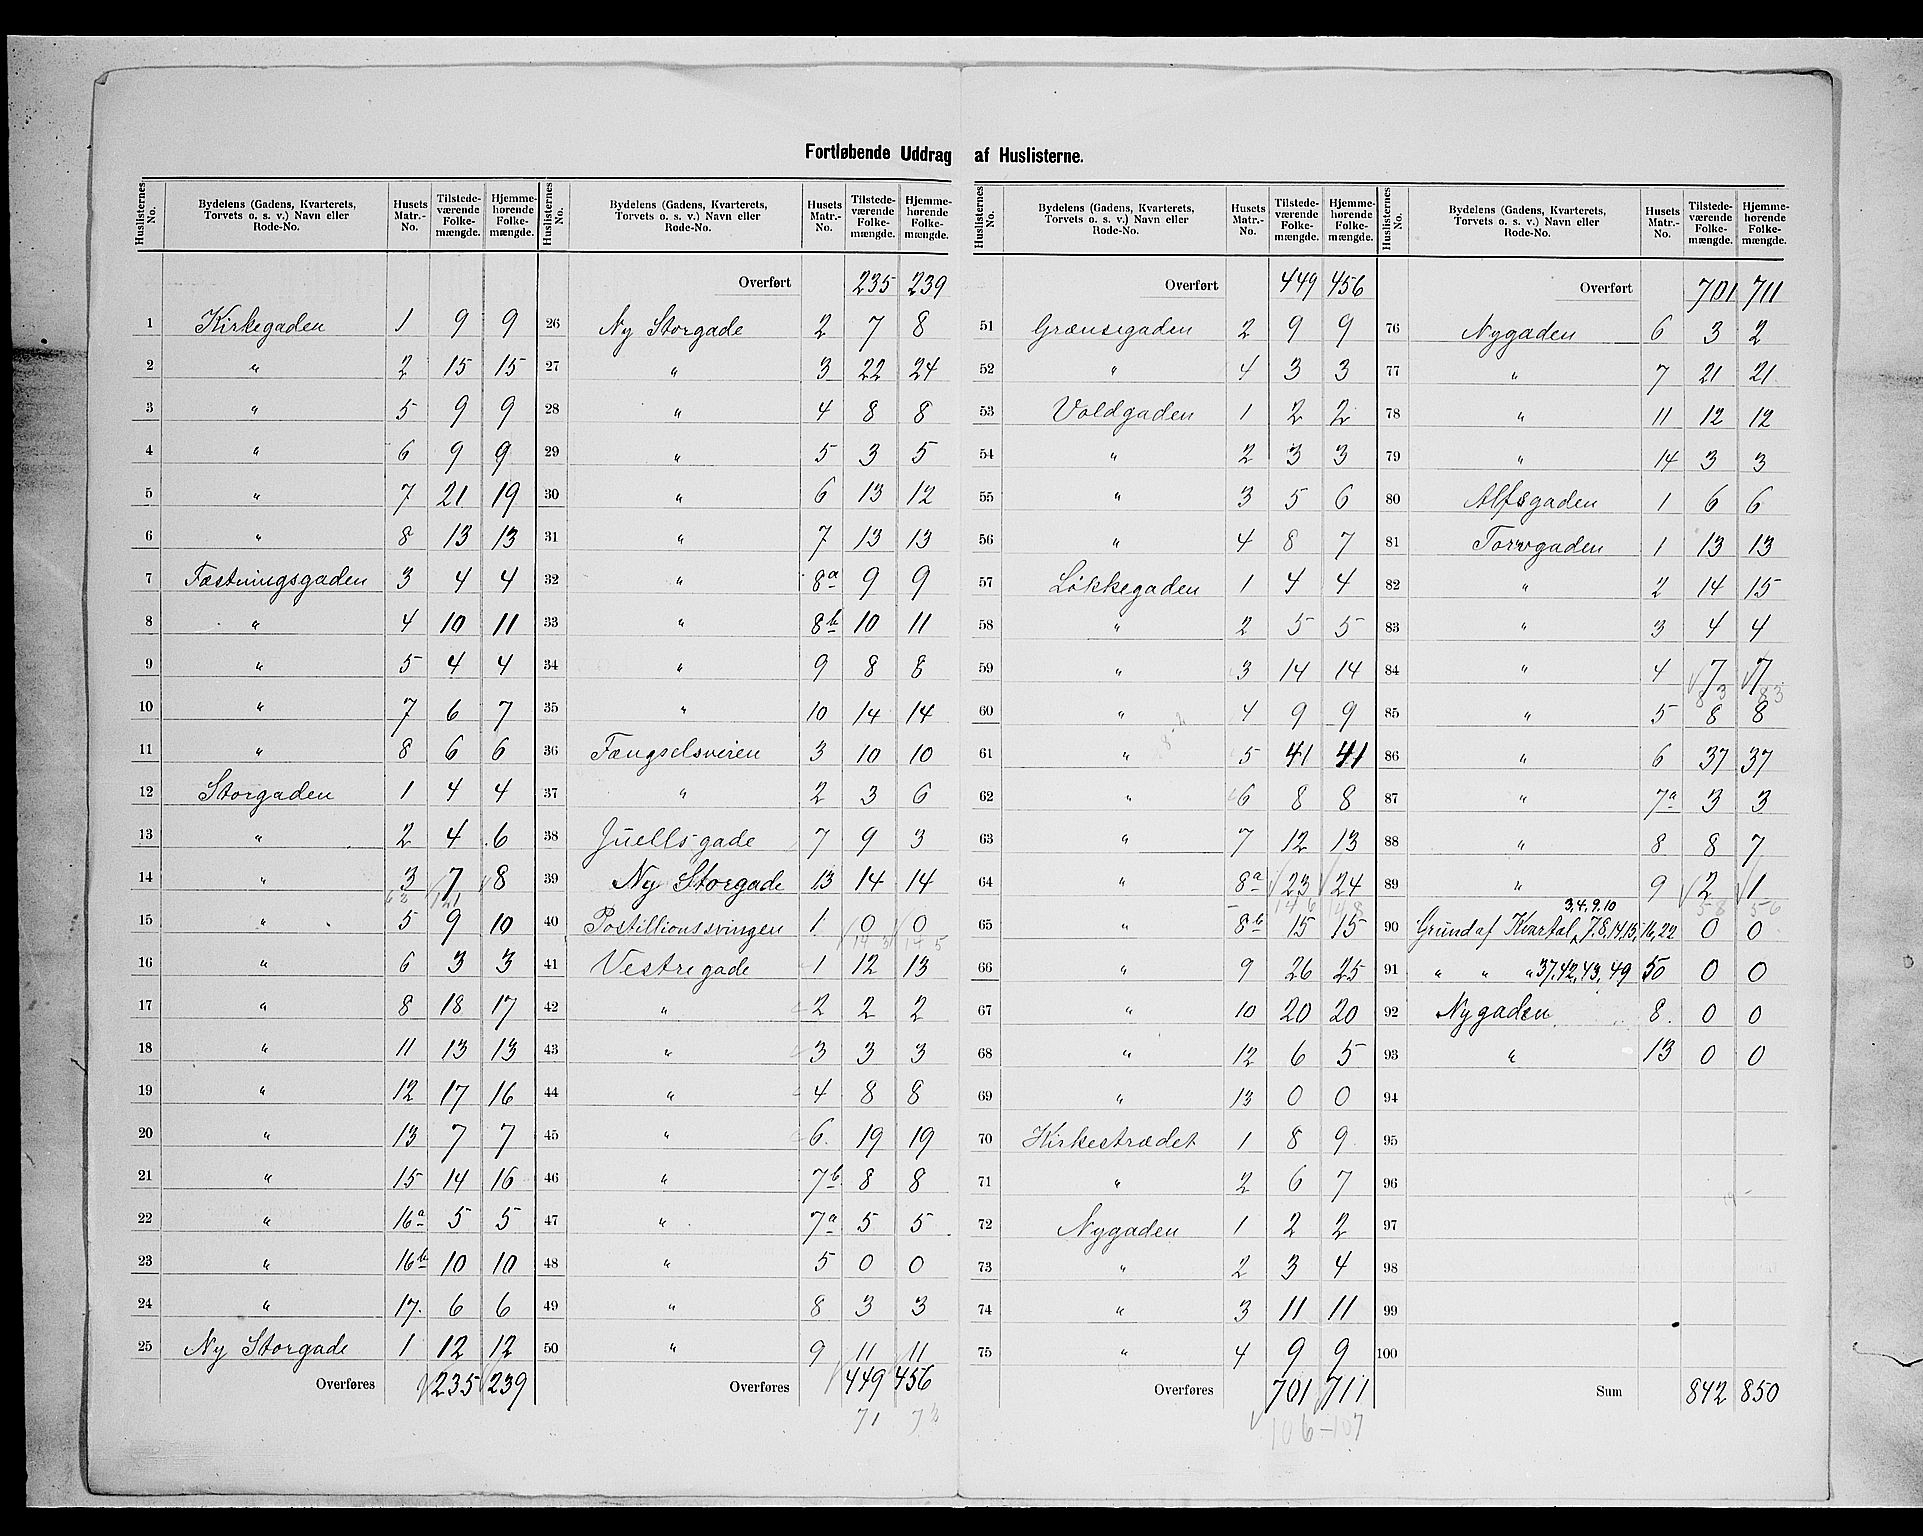 Fortløbende Uddrag af Huslisterne.
Huslisternes No. | Bydelens (Gadens, Kvarterets, Torvets o. s. v.) Navn eller Rode-No. | Husets Matr.-No. | Tilstedeværende Folkemængde. | Hjemmehørende Folkemængde.
1 Kirkegaden 1 9 9
2 " 2 15 15
3 " 5 9 9
4 " 6 9 9
5 " 7 21 19
6 " 8 13 13
7 Fæstningsgaden 3 4 4
8 " 4 10 11
9 " 5 4 4
10 " 7 6 7
11 " 8 6 6
12 Storgaden 1 4 4
13 " 2 4 6
14 " 3 7 8
15 " 5 9 10
16 " 6 3 3
17 " 8 18 17
18 " 11 13 13
19 " 12 17 16
20 " 13 7 7
21 " 15 14 16
22 " 16a 5 5
23 " 16b 10 10
24 " 17. 6 6
25 Ny Storgade 1 12 12
Overføres 235 239
Huslisternes No. | Bydelens (Gadens, Kvarterets, Torvets o. s. v.) Navn eller Rode-No. | Husets Matr.-No. | Tilstedeværende Folkemængde. | Hjemmehørende Folkemængde.
Overført 235 239
26 Ny Storgade 2 7 8
27 " 3 22 24
28 " 4 8 8
29 " 5 3 5
30 " 6 13 12
31 " 7 13 13
32 " 8a 9 9
33 " 8b 10 11
34 " 9 8 8
35 " 10 14 14
36 Fængselsveien 3 10 10
37 " 2 3 6
38 Juellsgade 7 9 3
39 Ny Storgade 13 14 14
40 Postillionssvingen 1 0 0
41 Vestregade 1 12 13
42 " 2 2 2
43 " 3 3 3
44 " 4 8 8
45 " 6. 19 19
46 " 7b 8 8
47 " 7a 5 5
48 " 5 0 0
49 " 8 3 3
50 " 9 11 11
Overføres 449 456
71 73
Huslisternes No. | Bydelens (Gadens, Kvarterets, Torvets o. s. v.) Navn eller Rode-No. | Husets Matr.-No. | Tilstedeværende Folkemængde. | Hjemmehørende Folkemængde.
Overført 449 456
51 Grænsegaden 2 9 9
52 " 4 3 3
53 Voldgaden 1 2 2
54 " 2 3 3
55 " 3 5 6
56 " 4 8 7
57 Løkkegaden 1 4 4
58 " 2 5 5
59 " 3 14 14
60 " 4 9 9
61 " 5 41 41
62 " 6 8 8
63 " 7 12 13
64 " 8a 23 24
65 " 8b 15 15
66 " 9 26 25
67 " 10 20 20
68 " 12 6 5
69 " 13 0 0
70 Kirkestrædet 1 8 9
71 " 2 6 7
72 Nygaden 1 2 2
73 " 2 3 4
74 " 3 11 11
75 " 4 9 9
Overføres 701 711
106-107
Huslisternes No. | Bydelens (Gadens, Kvarterets, Torvets o. s. v.) Navn eller Rode-No. | Husets Matr.-No. | Tilstedeværende Folkemængde. | Hjemmehørende Folkemængde.
Overført 701 711
76 Nygaden 6 3 2
77 " 7 21 21
78 " 11 12 12
79 " 14 3 3
80 Alfsgaden 1 6 6
81 Torvgaden 1 13 13
82 " 2 14 15
83 " 3 4 4
84 " 4 7 7
83 83
85 " 5 8 8
86 " 6 37 37
87 " 7a 3 3
88 " 8 8 7
89 " 9 2 1
58 56
3, 4, 9, 10
90 Grund af Kvartal 7. 8, 14, 15, 16, 22 0 0
91 " " " 37, 42, 43, 49 50 0 0
92 Nygaden 8. 0 0
93 " 13 0 0
94
95
96
97
98
99
100
Sum 842 850